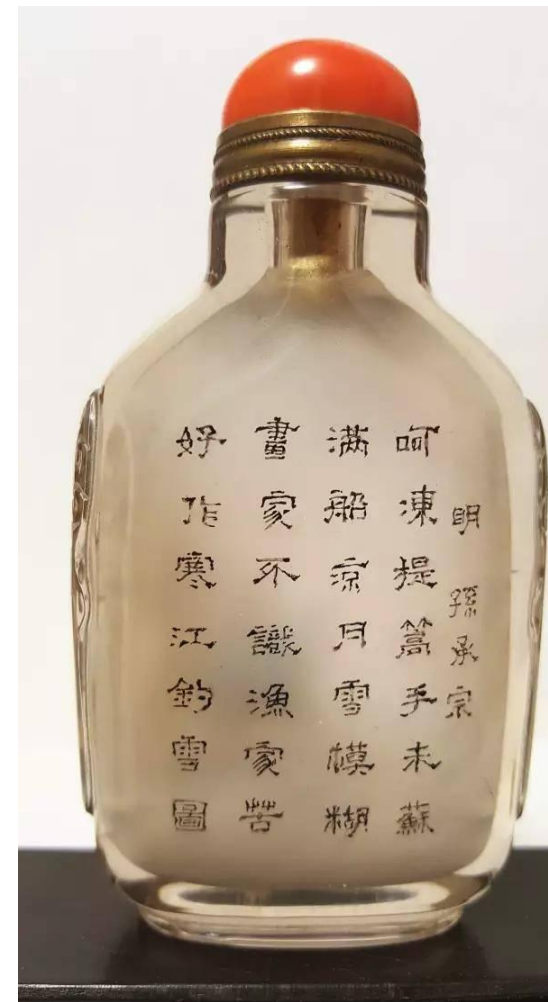 明 孫承宗
呵凍提篙手未蘇
满船凉月雪模糊
畫家不識漁家苦
好作寒江釣雪圖